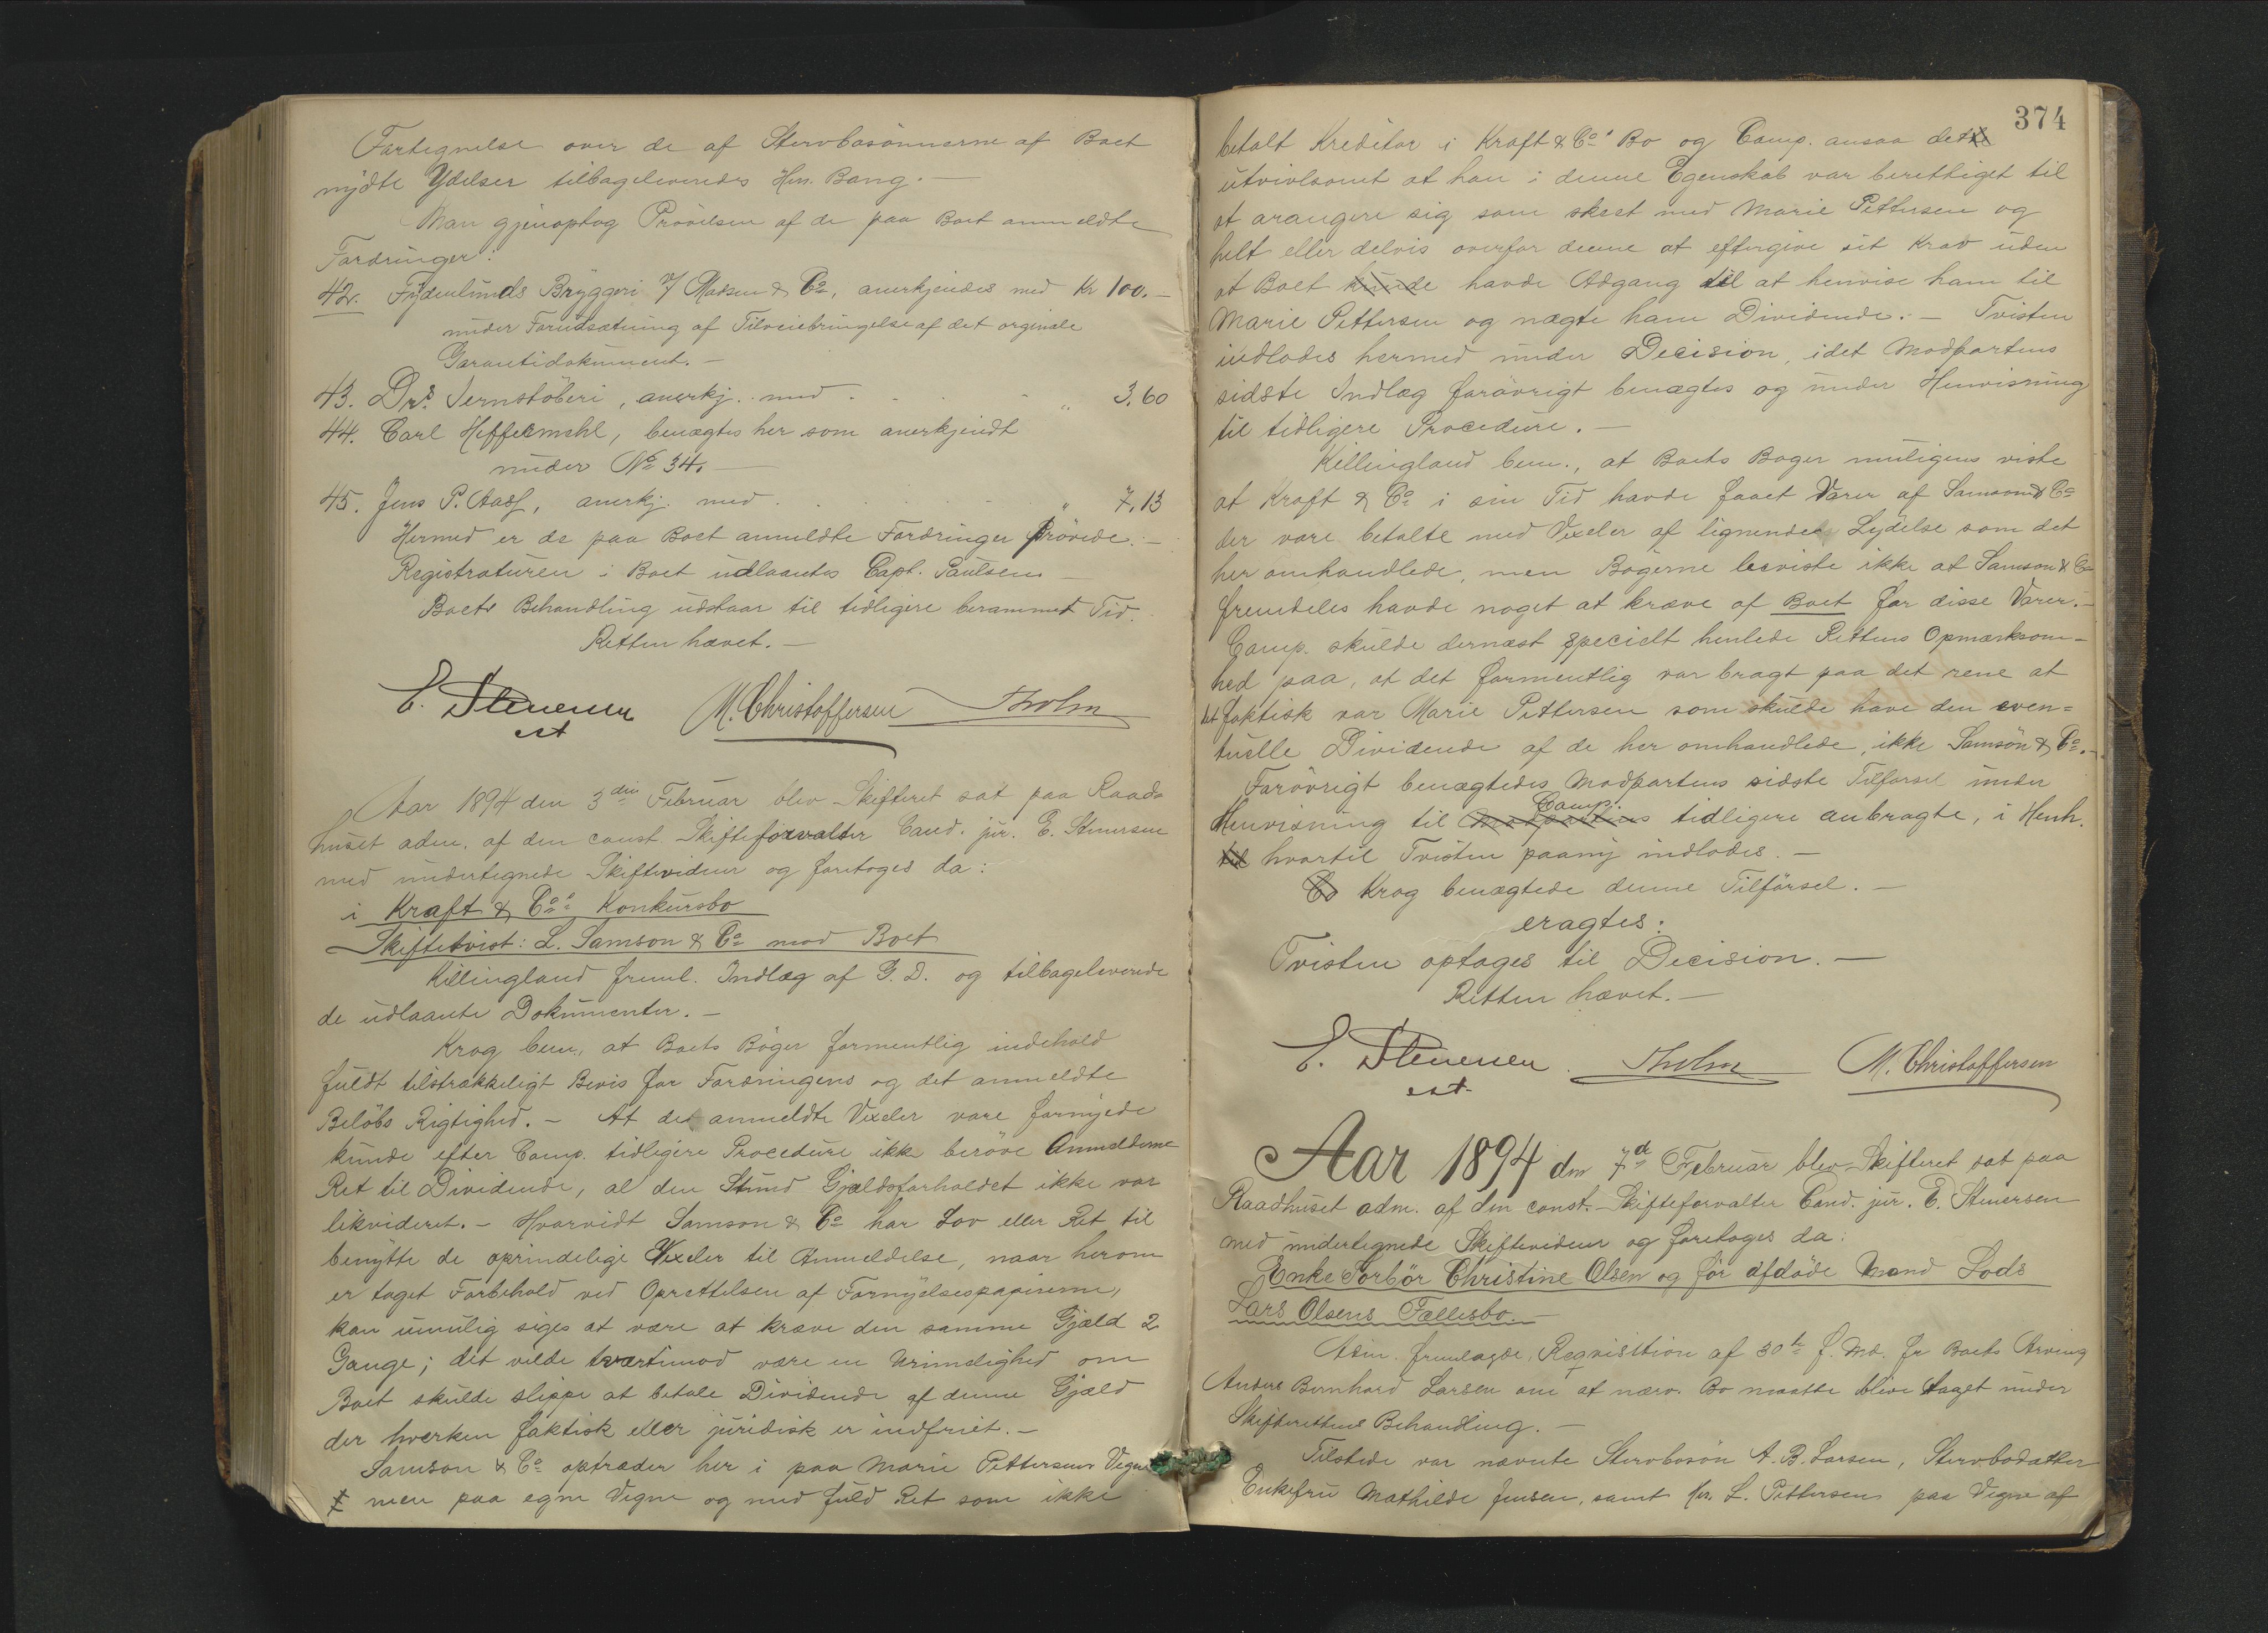 Fortegnelse over de af Stervbosönnerne af Boet
nydte Ydelser tilbageleveredes Hrr. Bang. —
Man gjenoptog Prövelsen af de paa Boet anmeldte
Fordringer:
42. Frydenlunds Bryggeri v/ Madsen & Co, anerkjendes med Kr 100.—
under Forudsætning af Tilveiebringelse af det orginale
Garantidokument. —
43. Drs. Jernstöberi, anerkj. med . . . " 3,60
44. Carl Heffermehl, benægtes her som anerkjendt
under No 34. —
45. Jens P. Aass, anerkj. med . . . " 7,13
Hermed er de paa Boet anmeldte Fordringer Prövede. —
Registraturen i Boet udlaantes Capt. Paulsen —
Boets Behandling udstaar til tidligere berammet Tid.
Retten hævet. —
E. Stenersen M. Christoffersen Tholm
cst
Aar 1894 den 3die Februar blev Skifteret sat paa Raad-
huset adm. af den const. Skifteforvalter Cand. jur. E. Stenersen
med undertegnede Skiftevidner og foretoges da:
i Kraft & Co's Konkursbo
Skiftetvist: L. Samson & Co mod Boet
Killingland freml. Indlæg af G. D. og tilbageleverede
de udlaante Dokumenter. —
Krog bem. at Boets Böger formentlig indehold
fuldt tilstrækkeligt Bevis for Fordringens og det anmeldte
Belöbs Rigtighed. — At de anmeldte Vexeler vare fornyede
kunde efter Comp. tidligere Procedure ikke beröve Anmelderne
Ret til Dividende, al den Stund Gjældsforholdet ikke var
likvideret. — Hvorvidt Samson & Co har Lov eller Ret til
benytte de oprindelige Vexeler til Anmeldelse, naar herom
er taget Forbehold ved Oprettelsen af Fornyelsespapirerne,
kan umulig siges at være at kræve den samme Gjæld 2
Gange; det vilde tværtimod være en Urimelighed om
Boet skulde slippe at betale Dividende af denne Gjæld
der hverken faktisk eller juridisk er indfriet. —
Samson & Co optræder her i paa Marie Pettersens Vegne
men paa egne Vegne og med fuld Ret som ikke
374
betalt Kreditor i Kraft & Co's Bo og Comp. ansaa det
utvivlsomt at han i denne Egenskab var berettiget til
at arangere sig som skeet med Marie Pettersen og
helt eller delvis overfor denne at eftergive sit Krav uden
at Boet kunde havde Adgang til at henvise ham til
Marie Pettersen og nægte ham Dividende. — Tvisten
indlodes hermed under Decision, idet Modpartens
sidste Indlæg forövrigt benægtes og under Henvisning
til tidligere Procedure. —
Killingland bem., at Boets Boger muligens viste
at Kraft & Co i sin Tid havde faaet Varer af Samson & Co
der vare betalte med Vexeler af lignende Lydelse som det
her omhandlede, men Bögerne beviste ikke at Samson & Co
fremdeles havde noget at kræve af Boet for disse Varer. —
Comp. skulde dernæst specielt henlede Rettens Opmærksom-
hed paa, at det formentlig var bragt paa det rene at
det faktisk var Marie Pettersen som skulde have den even-
tuelle Dividende af de her omhandlede, ikke Samsön & Co. —
Forövrigt benægtedes Modpartens sidste Tilförsel under
Henvisning til Modpartens Comp. tidligere anbragte, i Henh.
til hvortil Tvisten paany indlodes. —
Co Krog benægtede denne Tilförsel. —
eragtes:
Tvisten optages til Decision. —
Retten hævet. —
E. Stenersen Tholm M. Christoffersen
cst
Aar 1894 den 7de Februar blev Skifteret sat paa
Raadhuset adm. af den const. Skifteforvalter Cand. jur. E. Stenersen
med undertegnede Skiftevidner og foretoges da:
Enke Torbör Christine Olsen og för afdöde Mand Lods
Lars Olsens Fællesbo. —
Adm. fremlagde Reqvisition af 30te f. Md. fr Boets Arving
Anders Bernhard Larsen om at nærv. Bo maatte blive taget under
Skifterettens Behandling. —
Tilstede var nævnte Stervbosön A. B. Larsen, Stervbodatter
Enkefru Mathilde Jensen, samt Hr. L. Pettersen paa Vegne af